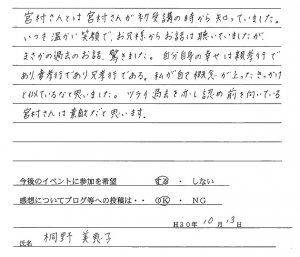 宮村さんとは宮村さんが初受講の時から知っていました。
いつも温かい笑顔で、お兄様からお話は聴いていましたが
まさかの過去のお話、驚きました。自分自身の幸せは親孝行で
あり妻孝行であり兄孝行である。私が自己概念が上ったきっかけ
と似ているなと思いました。ツライ過去を赤し認め前を向いている
宮村さんは素敵だと思います。
今後のイベントに参加を希望 する ・ しない
感想についてブログ等への投稿は・・ OK ・ NG
H30年 10月 13日
氏名 桐野 美典子